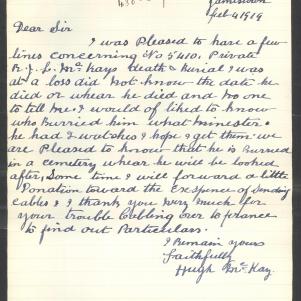 Jamestown
Feb 4 1919
Dear Sir
I was Pleased to have a few
lines concerning No 5410. Private
R. J. L. McKays death & Burial I was
at a loss did not know the date he
died or whear he died and no one
to tell me. I would of liked to know
who Burried him what Minester.
he had 2 watches I hope I get them. we
are Pleased to know that he is Burried
in a cemetery whear he will be looked
after, Some time I will forward a little
Donation toward the Exspence of Sending
cables, & I thank you very much for
your trouble Cabling over to france
to find out Particulars.
I Remain yours
faithfully
Hugh McKay.